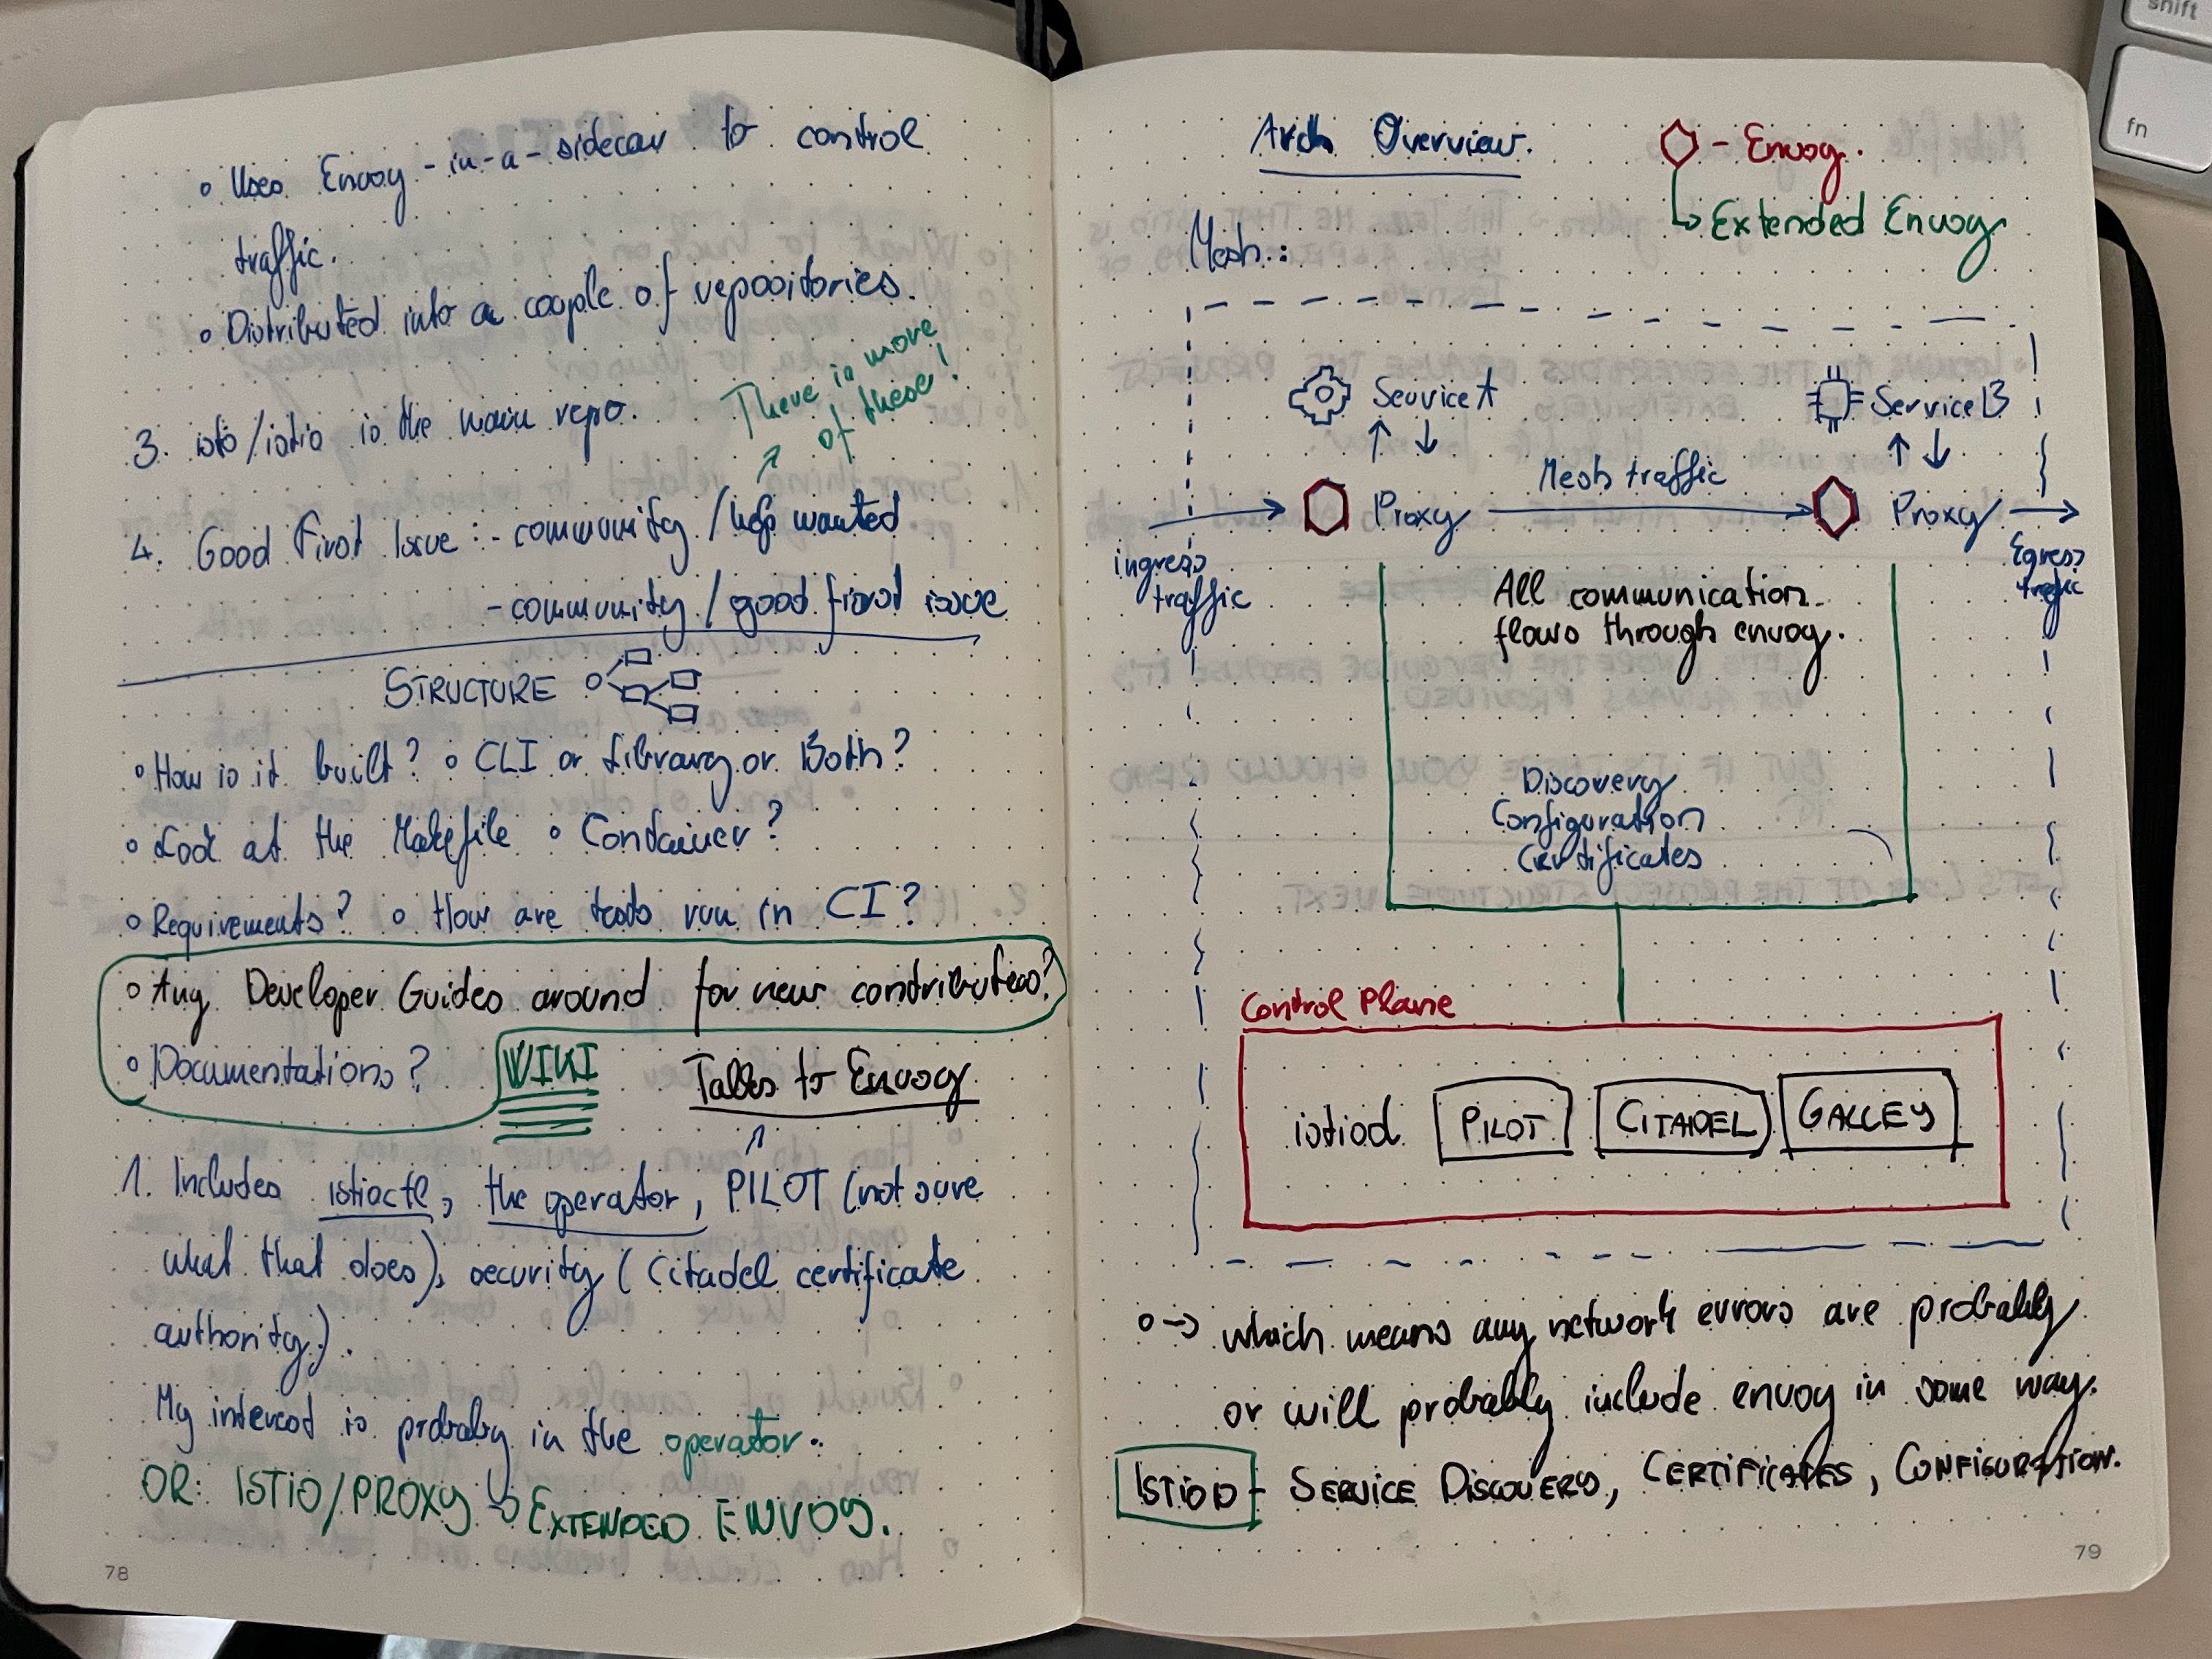 ◦ Uses Envoy-in-a-sidecar to control
traffic.
◦ Distributed into a couple of repositories.
There is more
of these!
3. isto/istio is the main repo.
4. Good First Issue: - community/help wanted
- community/good first issue
STRUCTURE
◦ How is it built? ◦ CLI or Library or Both?
◦ Look at the Makefile ◦ Container?
◦ Requirements? ◦ How are tests run in CI?
◦ Any Developer Guides around for new contributers?
◦ Documentations?
WIKI
Talks to Envoy
1. Includes istioctl, the operator, PILOT (not sure
what that does), security (Citadel certificate
authority).
My interest is probably in the operator.
OR: ISTIO/PROXY → EXTENDED ENVOY.
78
Arch Overview.
- Envoy.
Extended Envoy
Mesh:
Service A
Service B
Mesh traffic
Proxy
Proxy
ingress
traffic
Egress
trafic
All communication
flows through envoy.
Discovery
Configuration
Certificates
Control Plane
istiod
PILOT
CITADEL
GALLEY
◦→ which means any network errors are probably
or will probably include envoy in some way.
ISTIOD - SERVICE DISCOVERY, CERTIFICATES, CONFIGURATION.
79
shift
fn